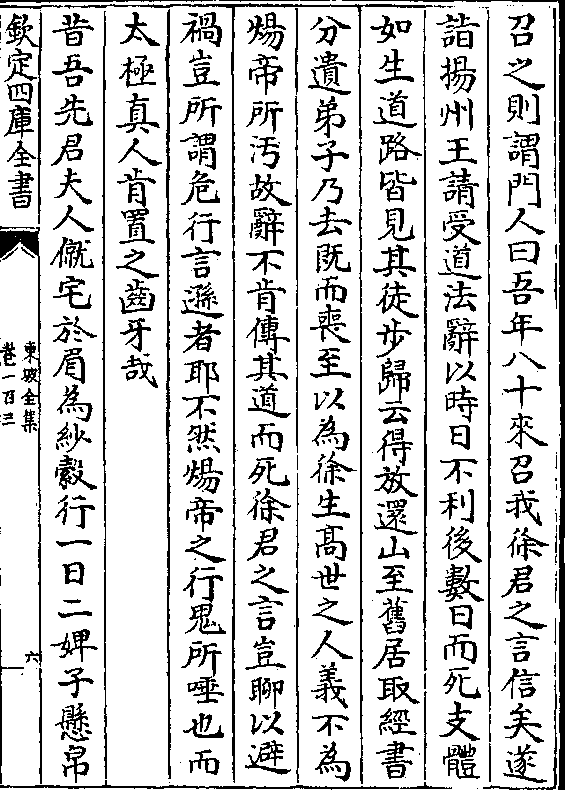 召之則謂門人曰吾年八十來召我徐君之言信矣遂
詣揚州王請受道法辭以時日不利後數日而死支體
如生道路皆見其徒步歸云得放還山至舊居取經書
分遺弟子乃去既而喪至以為徐生髙世之人義不為
煬帝所汚故辭不肯傳其道而死徐君之言豈聊以避
禍豈所謂危行言遜者耶不然煬帝之行鬼所唾也而
太極真人肯置之齒牙哉
昔吾先君夫人僦宅於眉為紗縠行一日二婢子熨帛
欽定四庫全書
東坡全集
卷一百三
六